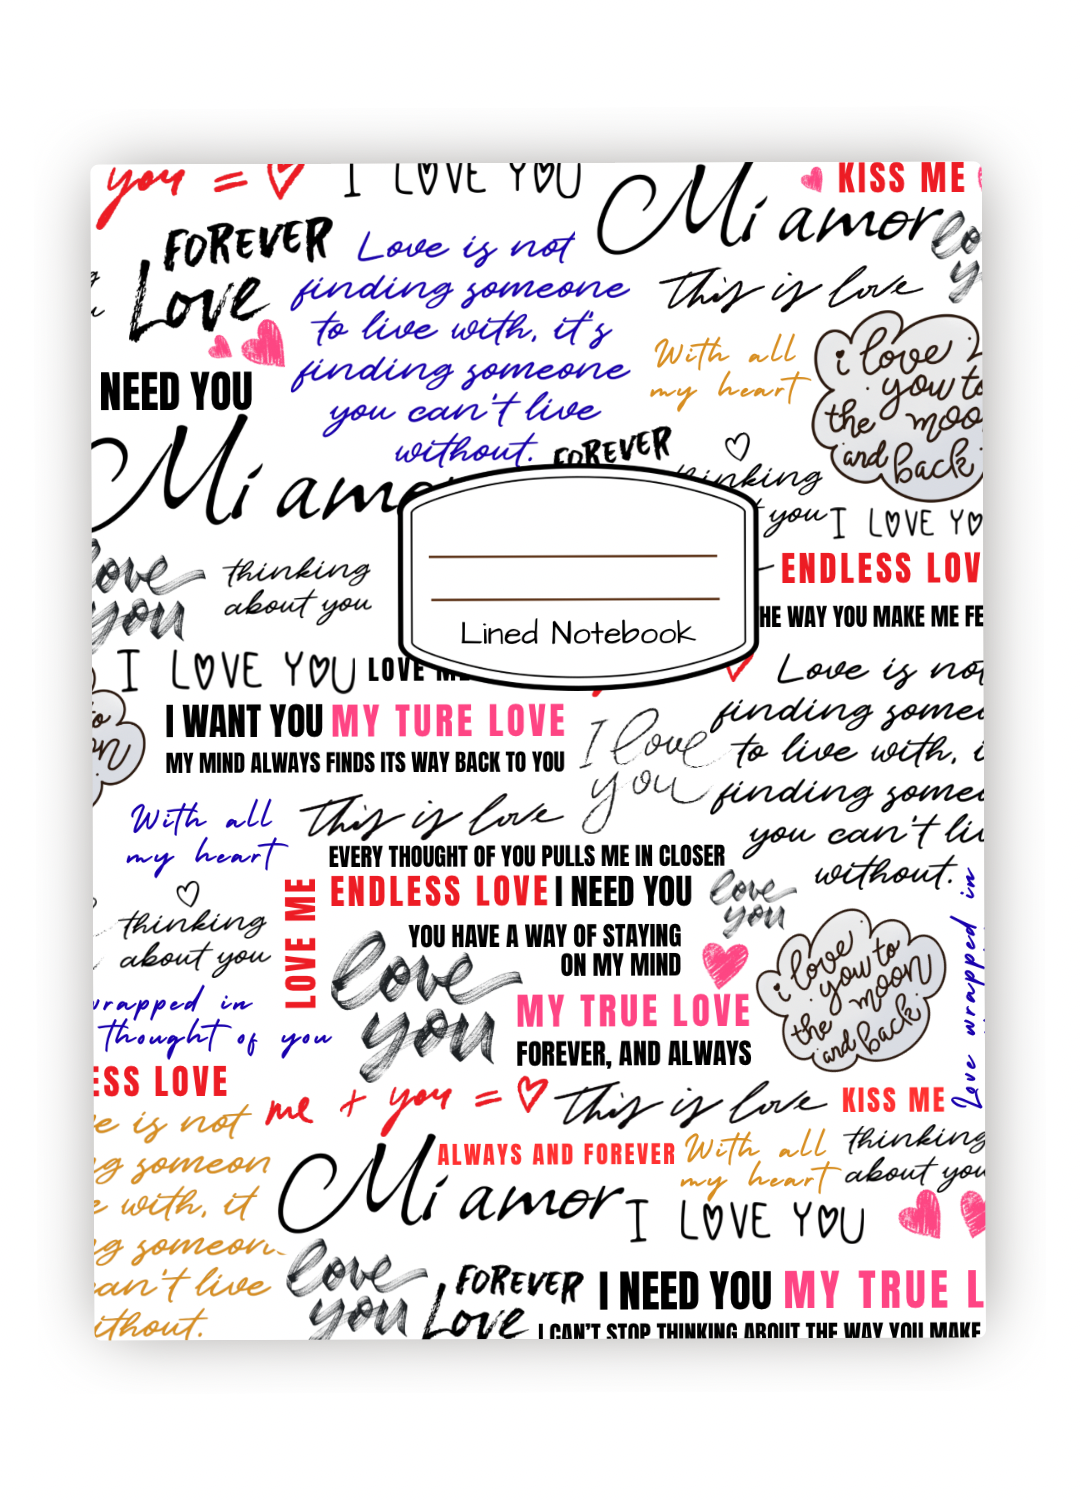 you =
I LOVE YOU
Mi amor
KISS ME
FOREVER
Love
Love is not
finding someone
to live with, it's
finding someone
you can't live
without.
This is love
With all
my heart
i love
you to
the moo
and back
NEED YOU
FOREVER
Mi amo
thinking
you
I LOVE YO
love
you
thinking
about you
ENDLESS LOV
HE WAY YOU MAKE ME FE
Lined Notebook
I LOVE YOU
LOVE ME
I WANT YOU MY TURE LOVE
MY MIND ALWAYS FINDS ITS WAY BACK TO YOU
I love
you
Love is not
finding someo
to live with, i
finding someo
you can't liv
without.
With all
my heart
This is love
EVERY THOUGHT OF YOU PULLS ME IN CLOSER
LOVE ME
ENDLESS LOVE I NEED YOU
love
you
thinking
about you
YOU HAVE A WAY OF STAYING
ON MY MIND
love
you
i love
you to
the moon
and back
Love wrapped in
wrapped in
thought of you
MY TRUE LOVE
FOREVER, AND ALWAYS
ESS LOVE
me + you =
This is love
KISS ME
e is not
g someon
e with, it
g someon
an't live
ithout.
ALWAYS AND FOREVER
With all
my heart
thinking
about you
Mi amor
I LOVE YOU
love
you
FOREVER
Love
I NEED YOU MY TRUE L
I CAN'T STOP THINKING ABOUT THE WAY YOU MAKE